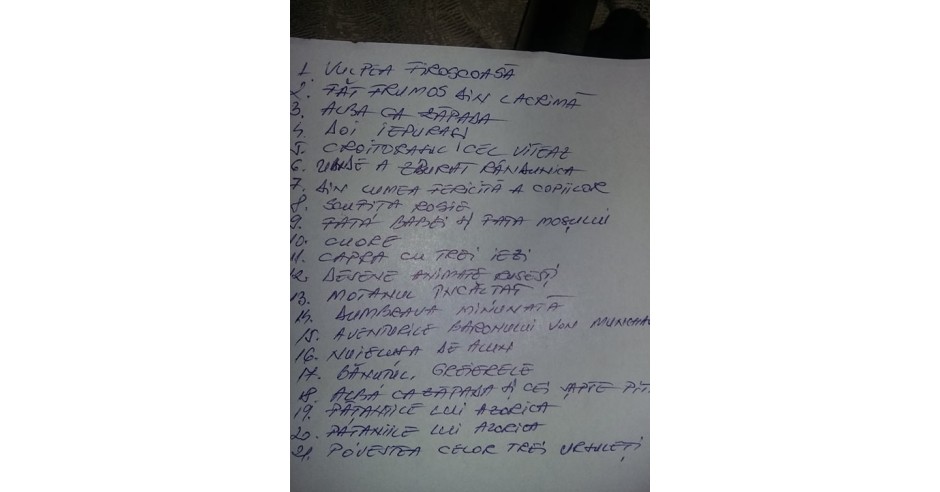 1. VULPEA FIROSCOASĂ
2. FĂT FRUMOS DIN LACRIMĂ
3. ALBA CA ZĂPADA
4. DOI IEPURAȘI
5. CROITORAȘUL CEL VITEAZ
6. UNDE A ZBURAT RÂNDUNICA
7. DIN LUMEA FERICITĂ A COPIILOR
8. SCUFIȚA ROȘIE
9. FATA BABEI ȘI FATA MOȘULUI
10. CUORE
11. CAPRA CU TREI IEZI
12. DESENE ANIMATE RUSEȘTI
13. MOTANUL ÎNCĂLȚAT
14. DUMBRAVA MINUNATĂ
15. AVENTURILE BARONULUI VON MUNCHA
16. NUIELUȘA DE ALUN
17. BĂNUȚUL, GREIERELE
18. ALBĂ CA ZĂPADA ȘI CEI ȘAPTE PIT
19. PĂȚANIILE LUI AZORICĂ
20. PĂȚANIILE LUI AZORICĂ
21. POVESTEA CELOR TREI URSULEȚI